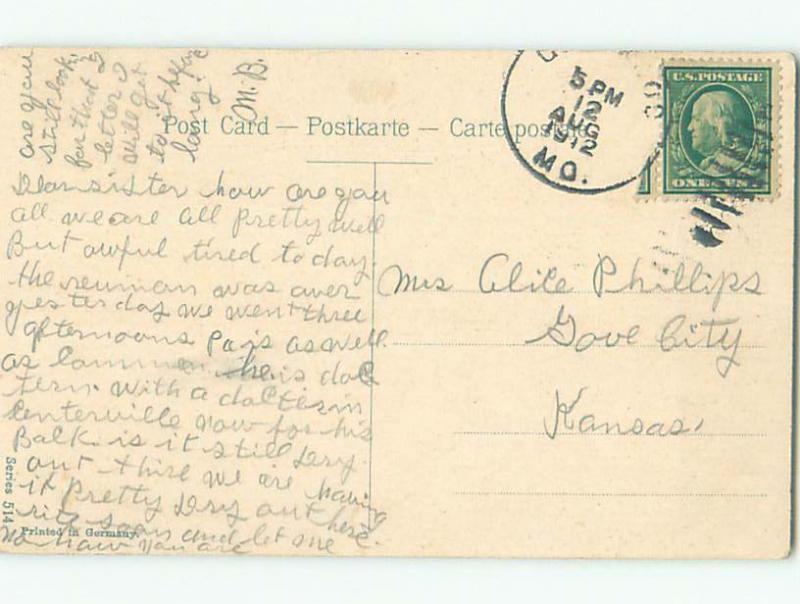 are you
still look
for that
letter I
will get
to it before
long.
M. B.
Post Card — Postkarte — Carte postale
5 PM
12
AUG
1912
MO.
U.S. POSTAGE
ONE CENT
Dear sister how are you
all we are all pretty well
But awful tired to day.
the reunion was over
yesterday we went three
afternoons Pa is as well
as common he is doc
tern. with a docter in
Centerville now for his
Back. is it still Dry
out there we are having
it pretty Dry out here.
rite soon and let me
no how you are
Mrs Alice Phillips
Gove City
Kansas,
Series 514
Printed in Germany.